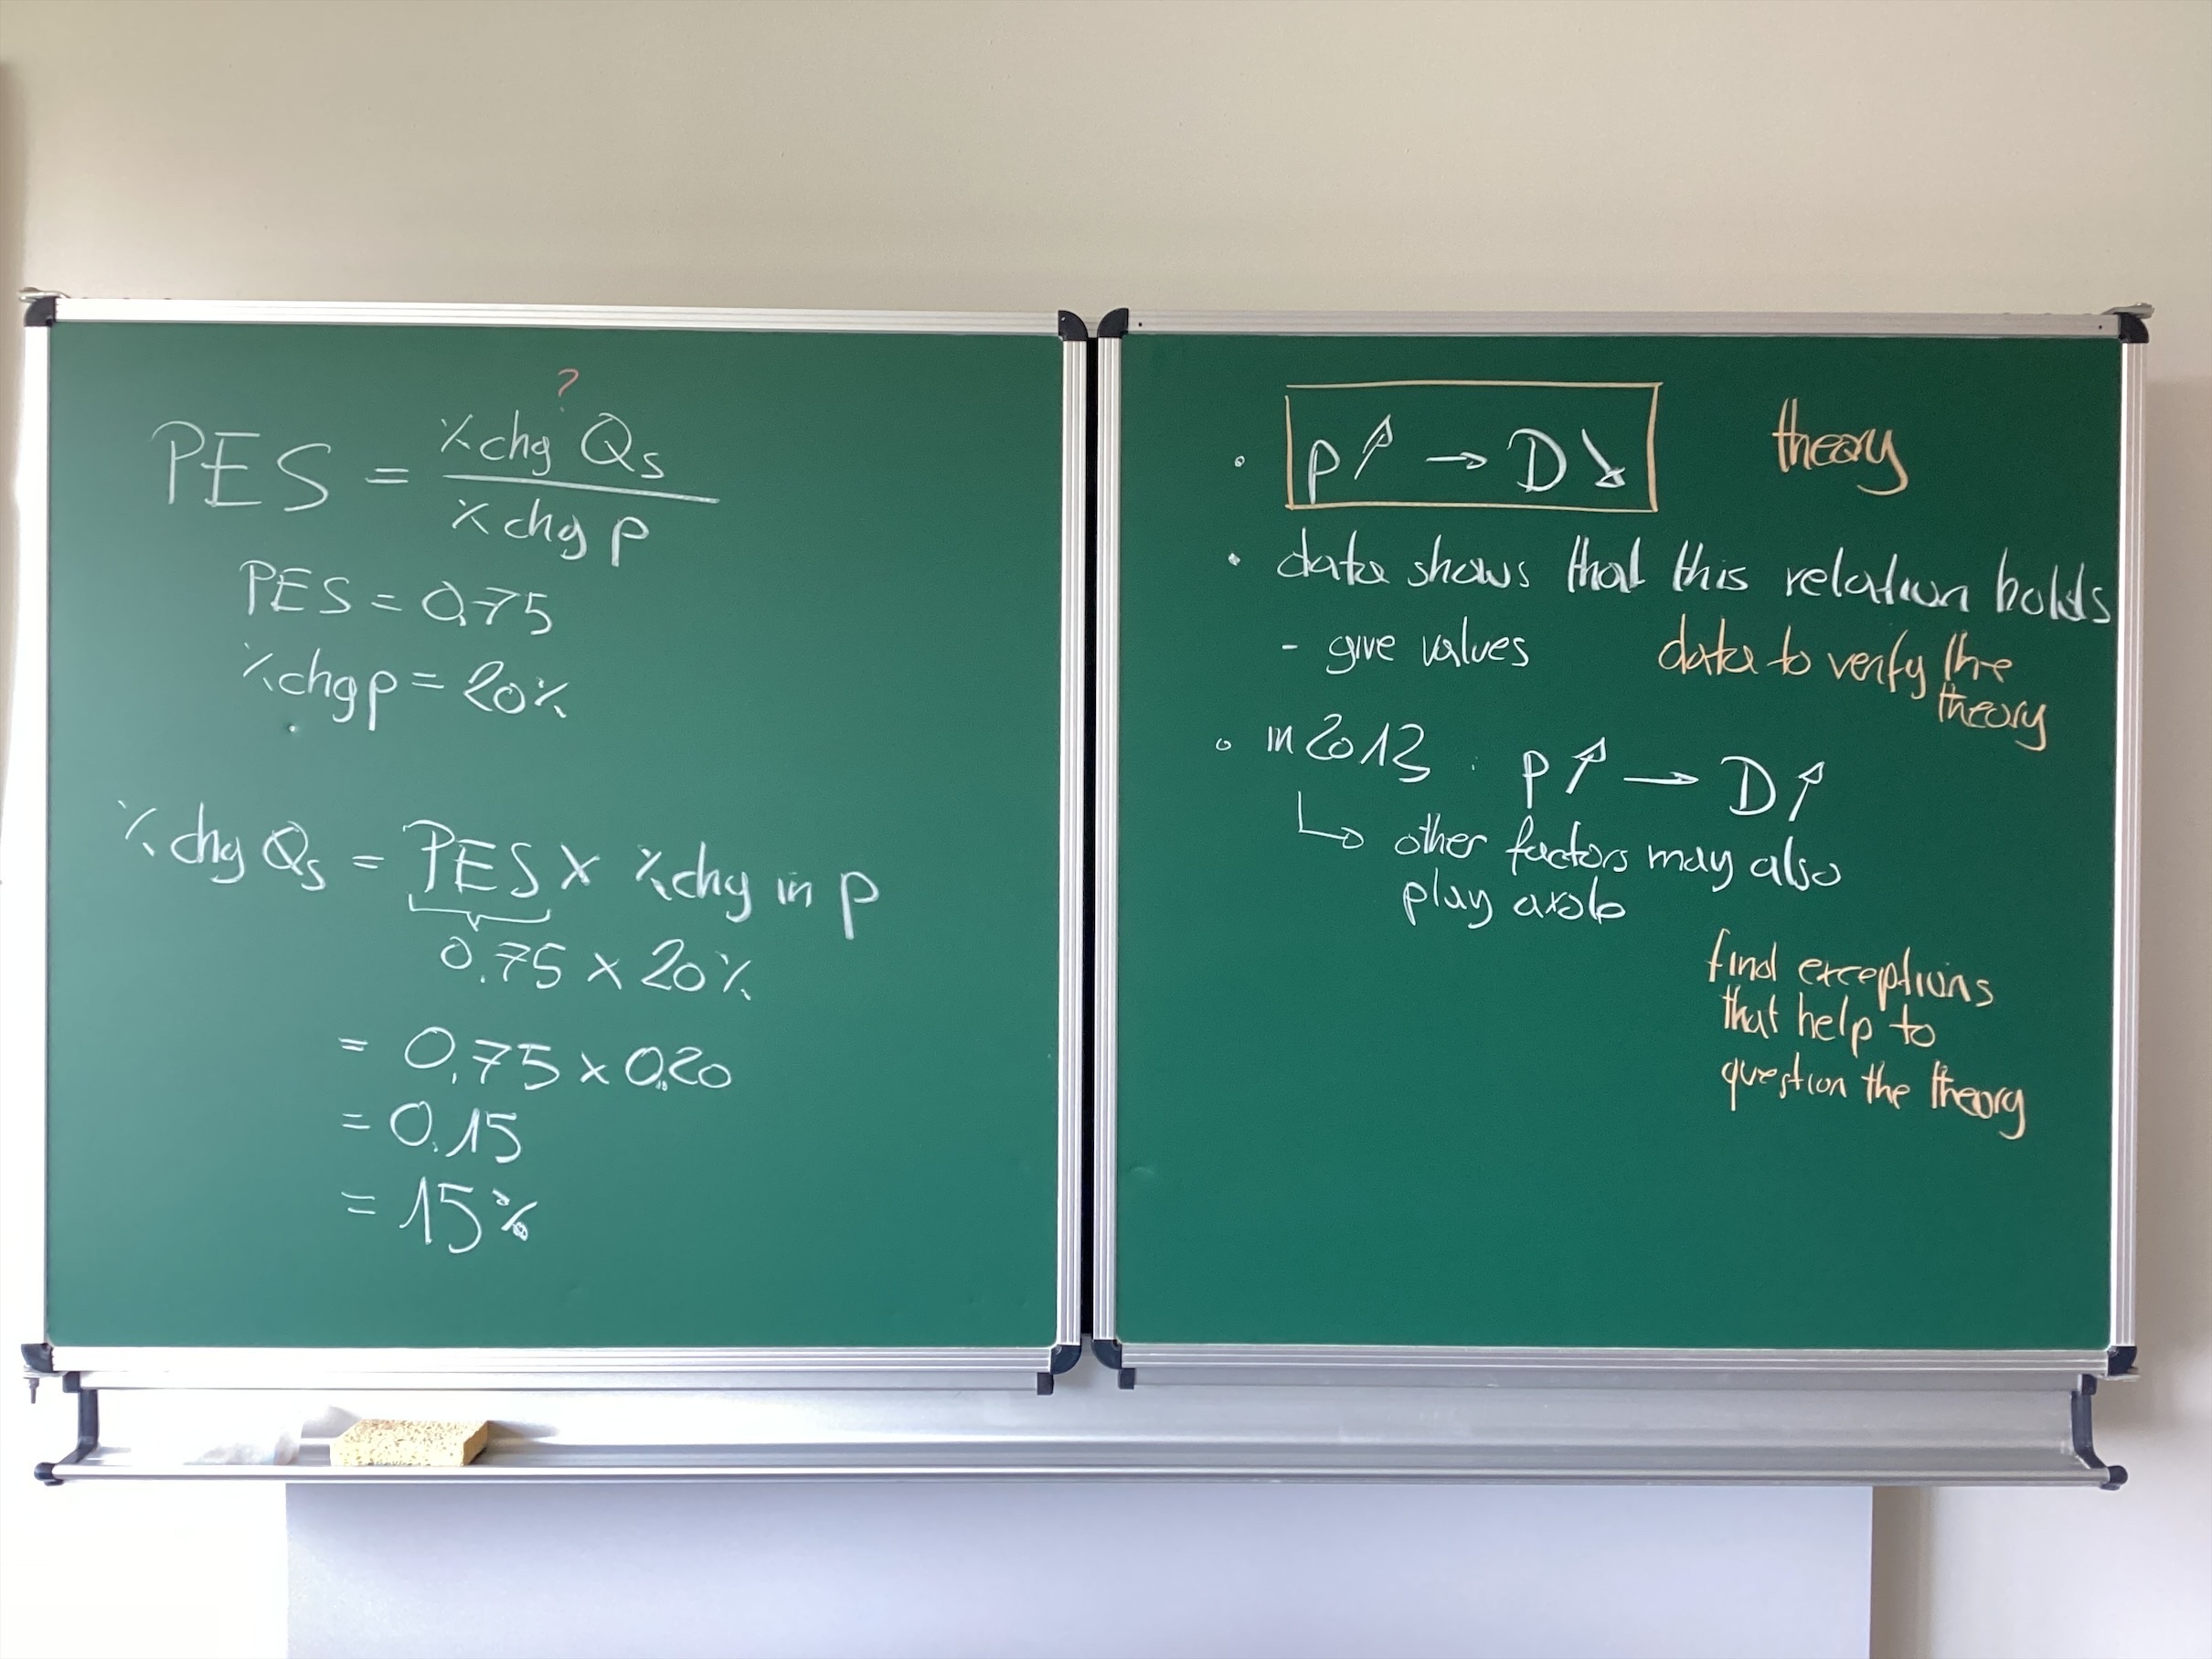 ?
PES = % chg Qs
% chg p
PES = 0.75
% chg p = 20%
% chg Qs = PES x % chg in p
0.75 x 20%
= 0.75 x 0.20
= 0.15
= 15%
• p↗ → D↘ theory
• data shows that this relation holds
- give values data to verify the
theory
• in 2013 p↗ → D↗
↳ other factors may also
play a role
find exceptions
that help to
question the theory